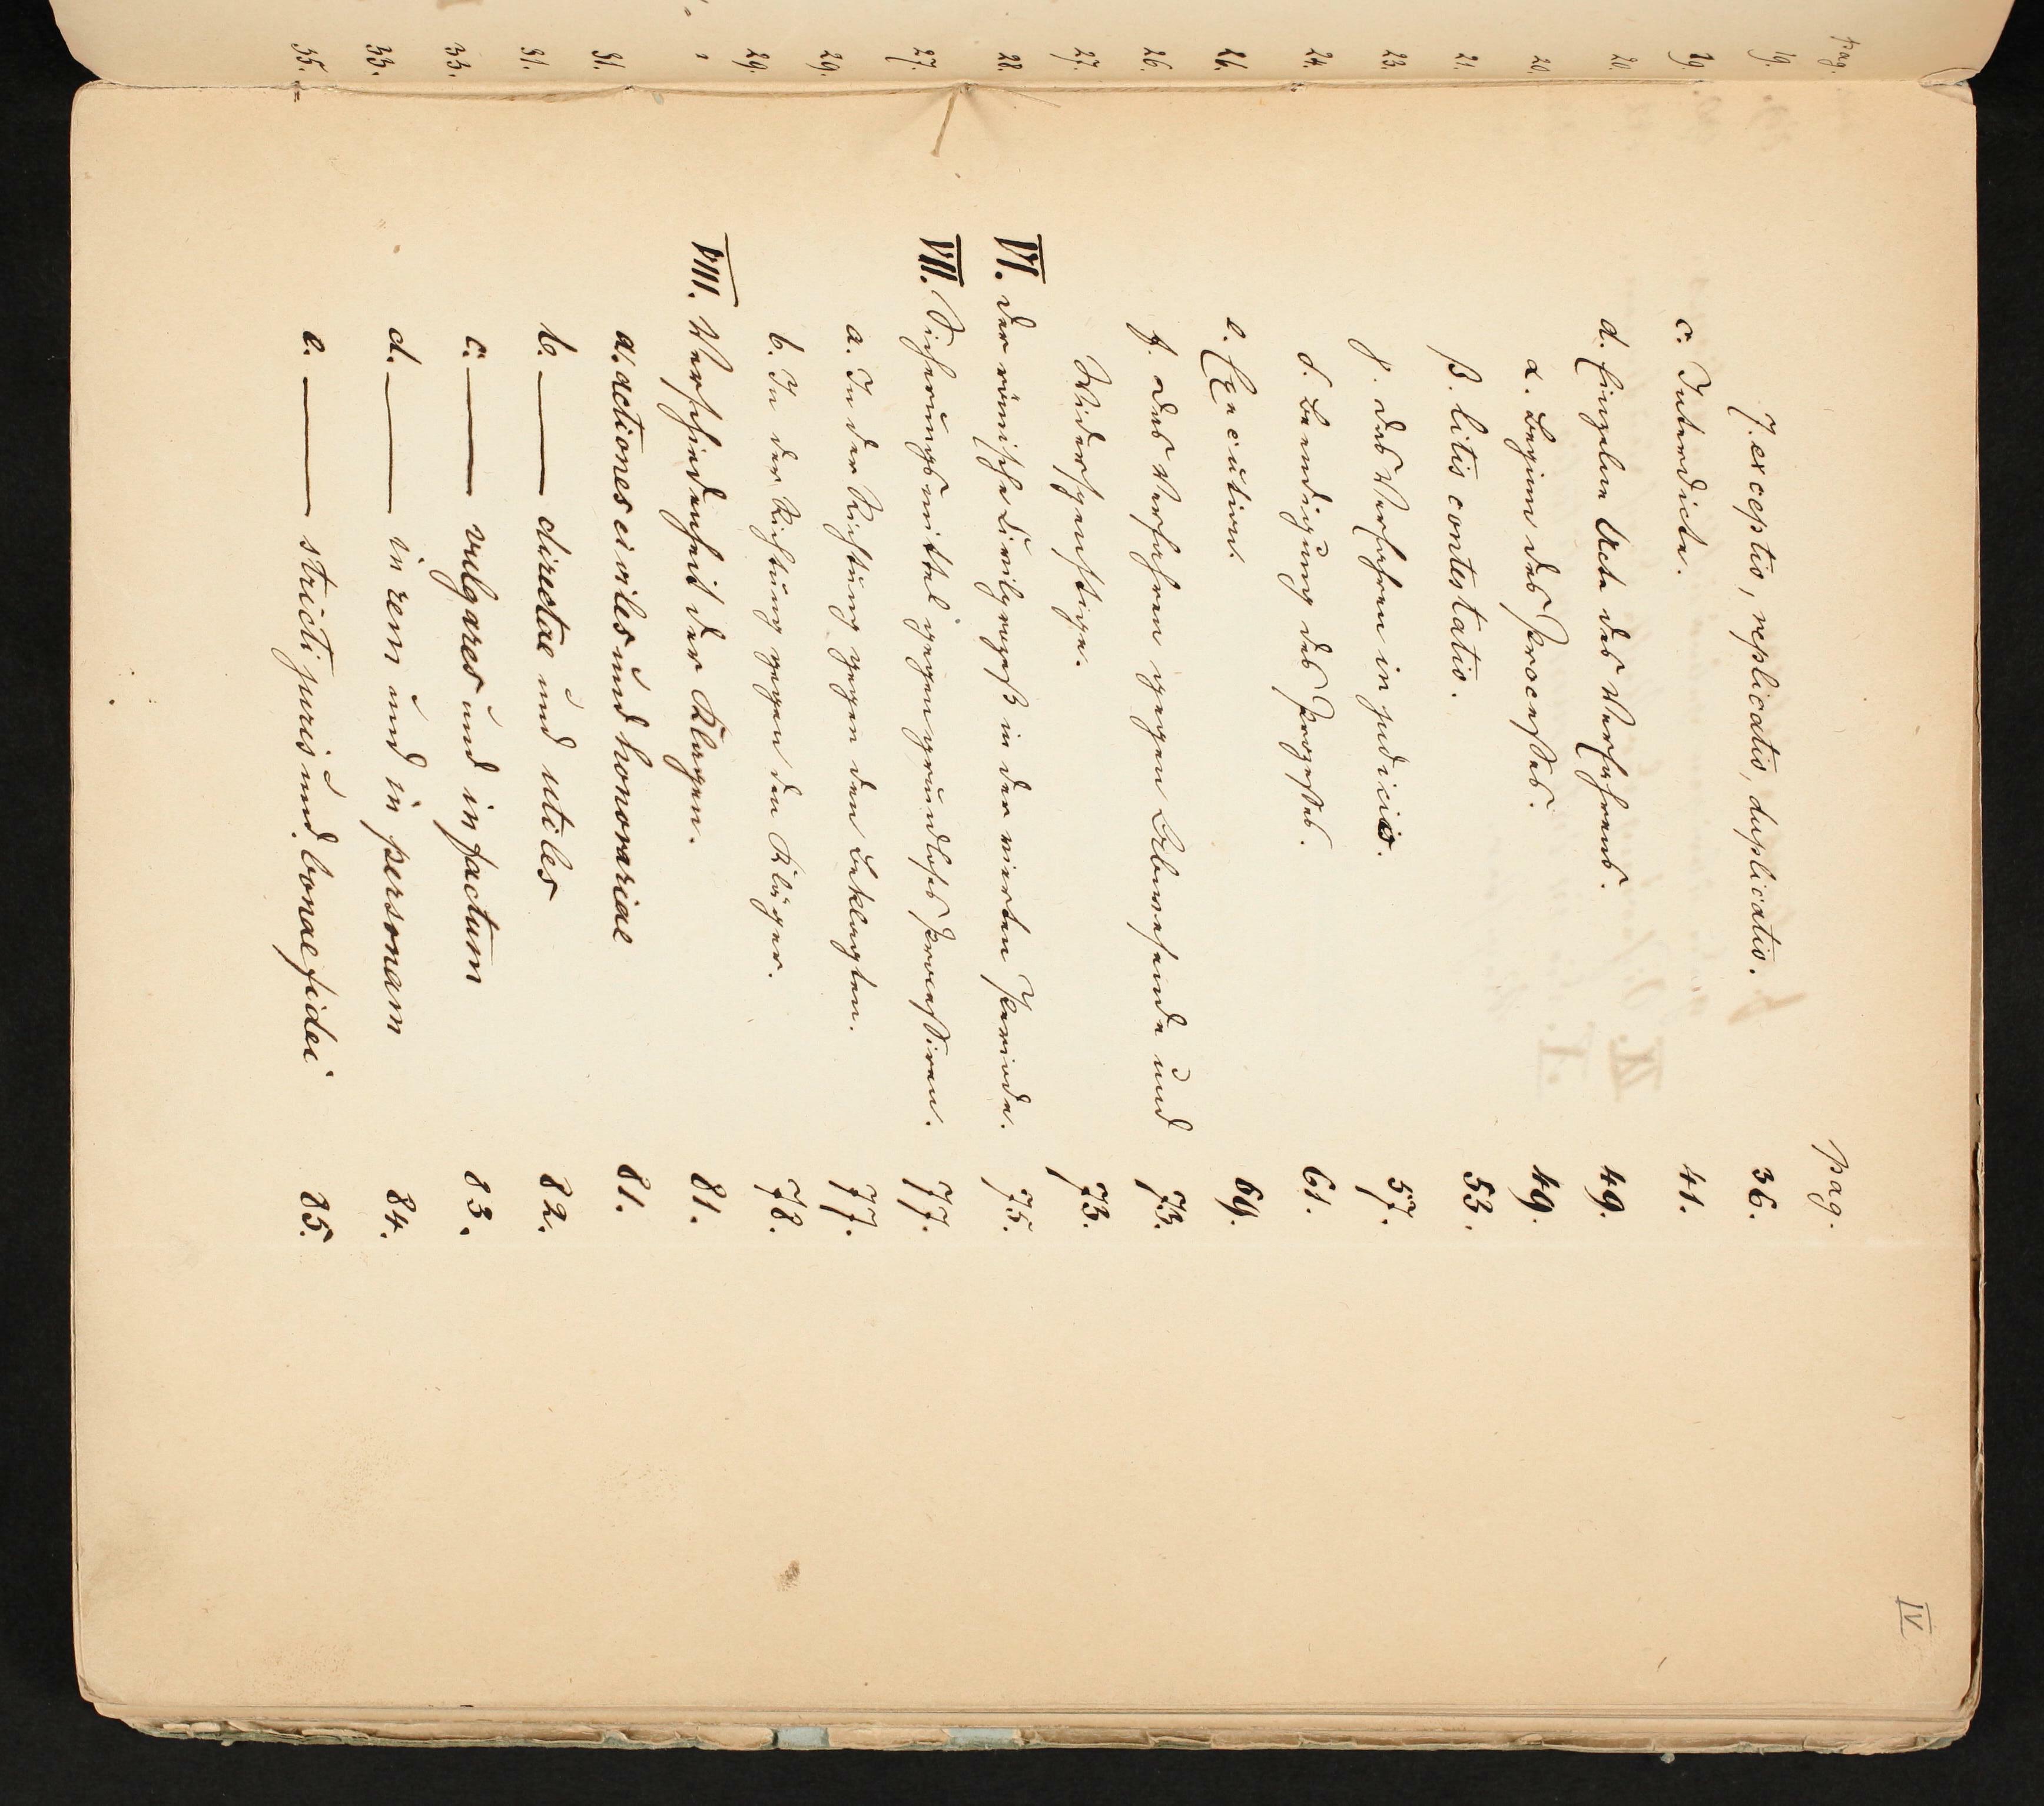 IV
pag.
7. exceptio, replicatio, duplicatio. 36.
c. Interdicte. 41.
d. Einzelne Acte des Verfahrens. 49.
α. Beginn des Processes. 49.
β. litis contestatio. 53.
γ. das Verfahren in judicio. 57.
δ. Beendigung des Prozesses. 61.
e. Execution. 69.
f. das Verfahren gegen Abwesende und 73.
Widerspenstige. 73.
VI. Der römische Civilprozeß in der vierten Periode. 75.
VII. Sicherungsmittel gegen grundloses Processiren. 77.
a. In der Richtung gegen den Beklagten. 77.
b. In der Richtung gegen den Kläger. 78.
VIII. Verschiedenheit der Klagen. 81.
a. actiones civiles und honorariae 81.
b. —— directae und utiles 82.
c. —— vulgares und in factum 83.
d. —— in rem und in personam 84.
e. —— stricti juris und bonae fidei 85.
pag.
19.
19.
20.
20.
21.
23.
24.
26.
26.
27.
28.
27.
29.
29.
31.
31.
33.
33.
35.